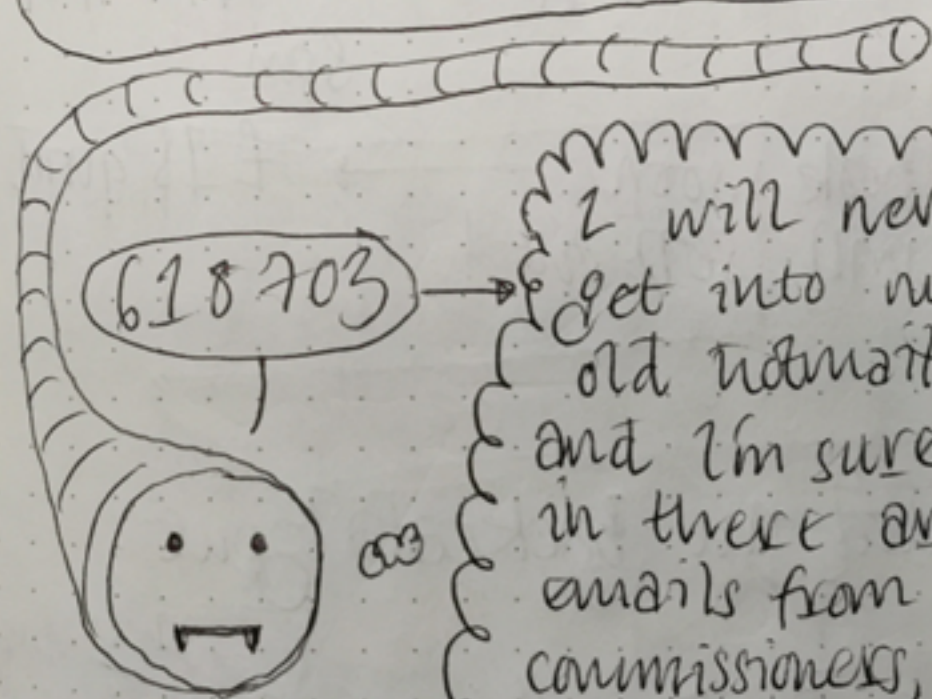 618703
I will nev
get into m
old hotmail
and I'm sure
in there ar
emails from
commissioners,